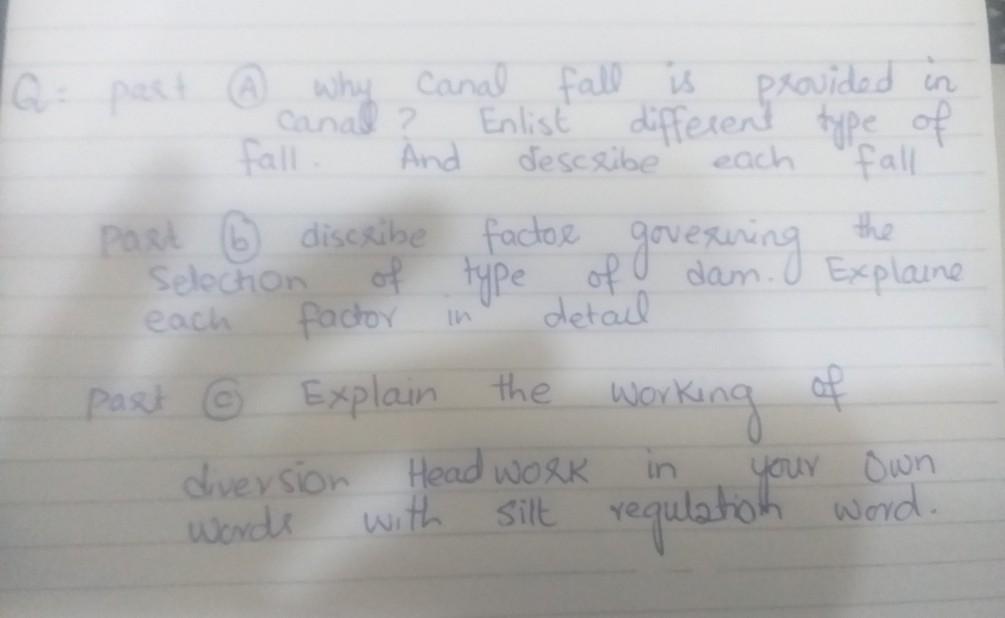 Q: part A why Canal fall is provided in
canal? Enlist different type of
fall. And describe each fall
Part b discribe factor governing the
Selection of type of dam. Explaine
each factor in detail
Part c Explain the working of
diversion Head work in your own
words with silt regulation word.